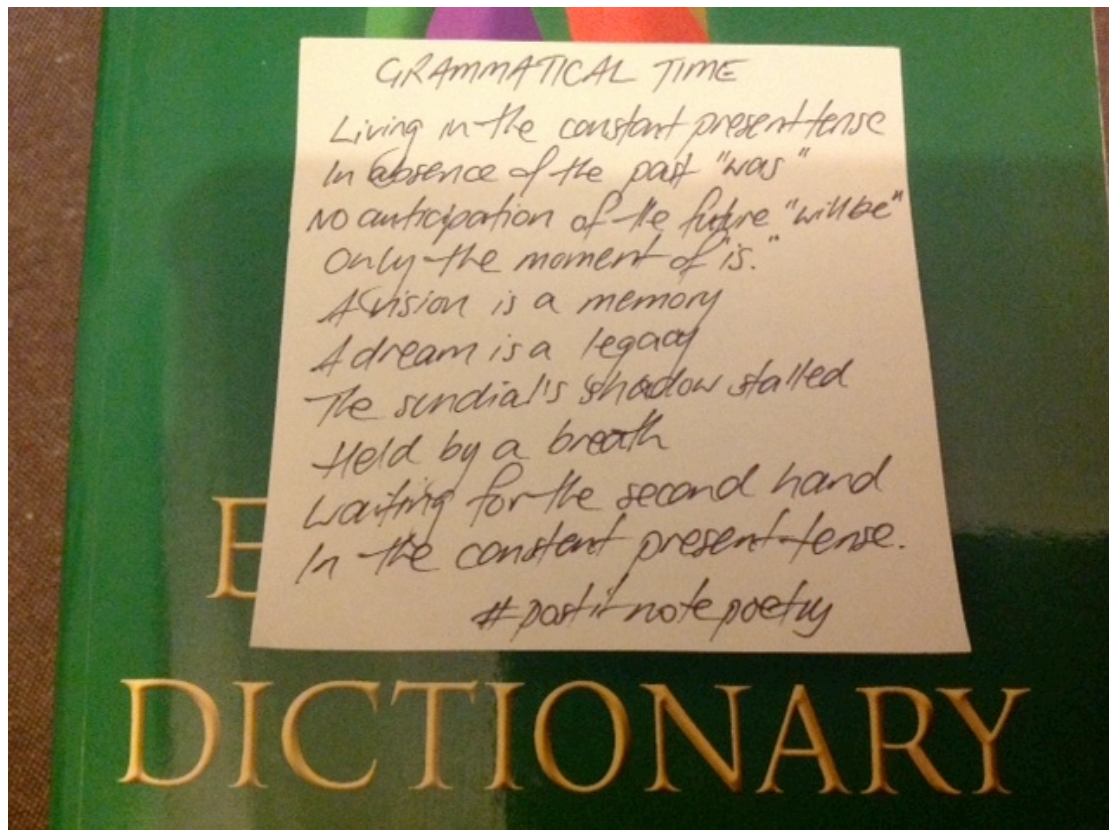 GRAMMATICAL TIME
Living in the constant present tense
In absence of the past "was"
No anticipation of the future "will be"
Only the moment of "is."
A vision is a memory
A dream is a legacy
The sundial's shadow stalled
Held by a breath
Waiting for the second hand
In the constant present tense.
#postitnotepoetry
E
DICTIONARY